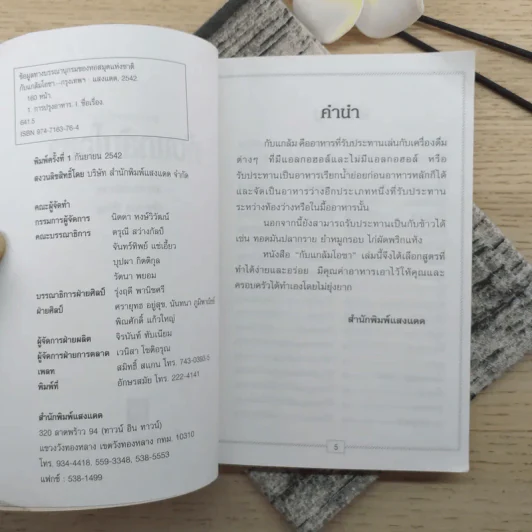 ข้อมูลทางบรรณานุกรมของหอสมุดแห่งชาติ
กับแกล้มโอชา.--กรุงเทพฯ : แสงแดด, 2542.
160 หน้า.
1. การปรุงอาหาร. I. ชื่อเรื่อง.
641.5
ISBN 974-7163-76-4
พิมพ์ครั้งที่ 1 กันยายน 2542
สงวนลิขสิทธิ์โดย บริษัท สำนักพิมพ์แสงแดด จำกัด
คณะผู้จัดทำ
กรรมการผู้จัดการ นิดดา หงษ์วิวัฒน์
คณะบรรณาธิการ ดรุณี สว่างภัลป์
จันทร์ทิพย์ แซ่เอี้ยว
บุปผา กิตติกุล
รัตนา พยอม
บรรณาธิการฝ่ายศิลป์ รุ่งฤดี พานิชตรี
ฝ่ายศิลป์ ศรายุทธ อยู่สุข, นันทนา ภูมิพาณิชย์
พิณศักดิ์ แก้วใหญ่
ผู้จัดการฝ่ายผลิต จิรนันท์ ทับเนียม
ผู้จัดการฝ่ายการตลาด เวนิสา โชติอรุณ
เพลท สมิทธิ์ สแกน โทร. 743-0380-2
พิมพ์ที่ อักษรสมัย โทร. 222-4141
สำนักพิมพ์แสงแดด
320 ลาดพร้าว 94 (ทาวน์ อิน ทาวน์)
แขวงวังทองหลาง เขตวังทองหลาง กทม. 10310
โทร. 934-4418, 559-3348, 538-5553
แฟกซ์ : 538-1499
คำนำ
กับแกล้ม คืออาหารที่รับประทานเล่นกับเครื่องดื่ม
ต่างๆ ที่มีแอลกอฮอล์และไม่มีแอลกอฮอล์ หรือ
รับประทานเป็นอาหารเรียกน้ำย่อยก่อนอาหารหลักก็ได้
และจัดเป็นอาหารว่างอีกประเภทหนึ่งที่รับประทาน
ระหว่างท้องว่างหรือในมื้ออาหารนั้น
นอกจากนี้ยังสามารถรับประทานเป็นกับข้าวได้
เช่น ทอดมันปลากราย ยำหมูกรอบ ไก่ผัดพริกแห้ง
หนังสือ "กับแกล้มโอชา" เล่มนี้จึงได้เลือกสูตรที่
ทำได้ง่ายและอร่อย มีคุณค่าอาหารเอาไว้ให้คุณและ
ครอบครัวได้ทำเองโดยไม่ยุ่งยาก
สำนักพิมพ์แสงแดด
5